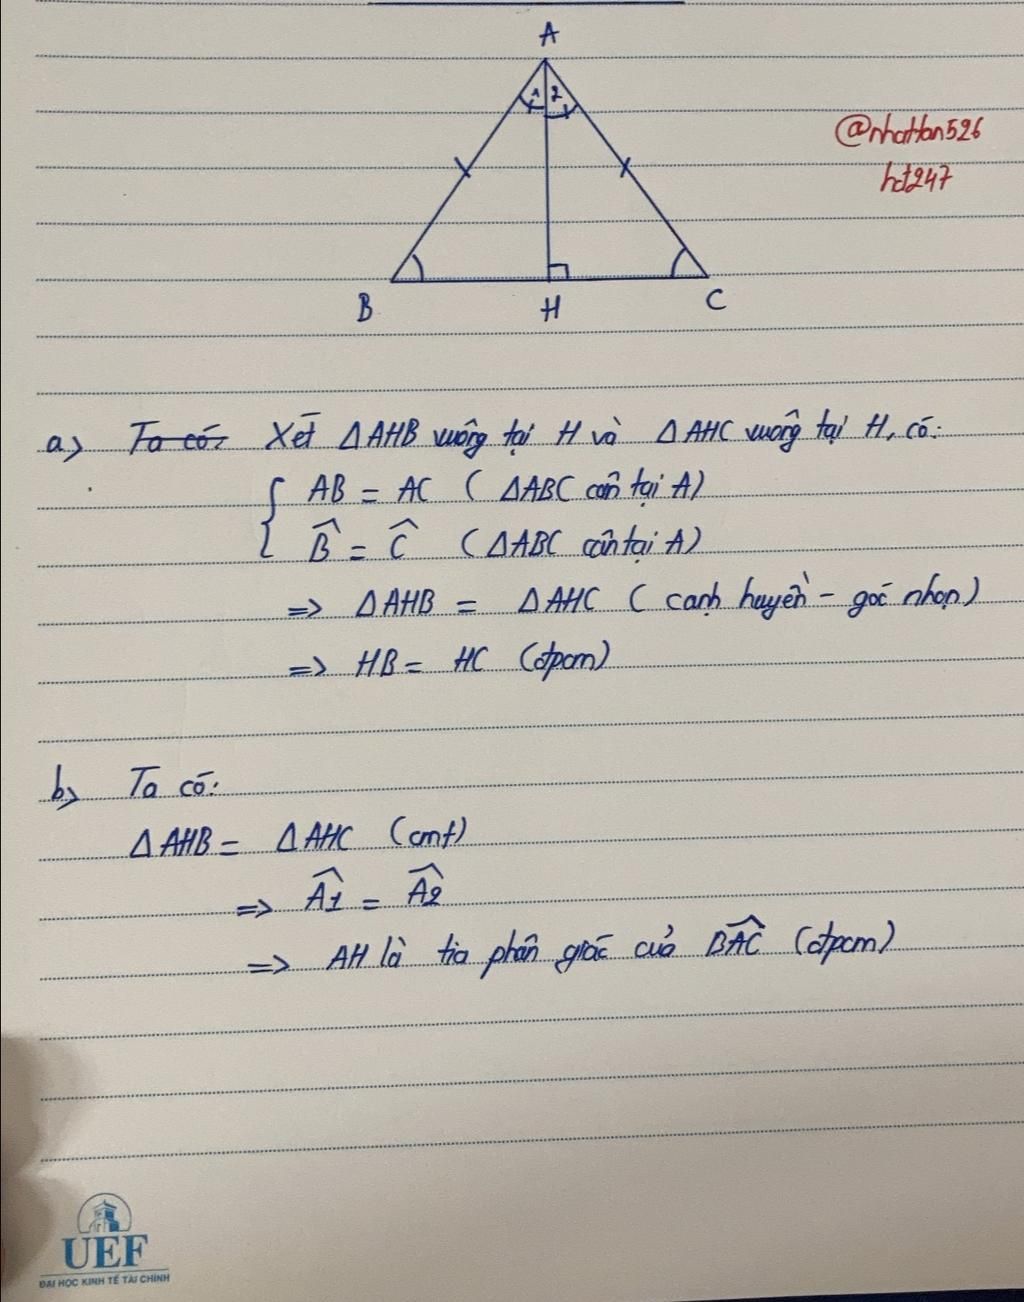 A
1 2
@nhattan526
hct247
B H C
a) Ta có: Xét ΔAHB vuông tại H và ΔAHC vuông tại H, có:
{ AB = AC ( ΔABC cân tại A)
B̂ = Ĉ (ΔABC cân tại A)
=> ΔAHB = ΔAHC ( cạnh huyền - góc nhọn)
=> HB = HC (đpcm)
b) Ta có:
ΔAHB = ΔAHC (cmt)
=> Â1 = Â2
=> AH là tia phân giác của BÂC (đpcm)
UEF
ĐẠI HỌC KINH TẾ TÀI CHÍNH